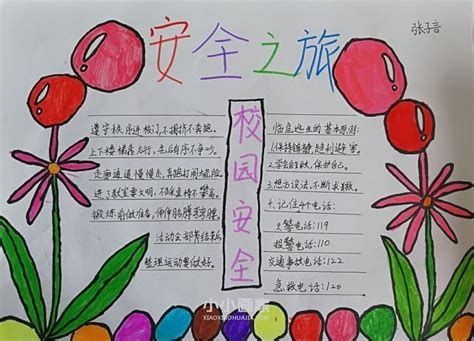 张子言
安全之旅
遵守秩序进校门,不拥挤不奔跑。
上下楼梯靠右行,先后有序不争吵。
走廊通道慢慢走,奔跑打闹危险。
进了教室要文明,不做桌椅不攀高。
锻炼前做准备,伸伸胳膊弯弯腰。
活动全部要结束,
整理运动要做好。
校园安全
临危逃生的基本原则:
1.保持镇静,趋利避害。
2.学会自救,保护自己。
3.想方设法,不断求救。
4.记住4个电话:
火警电话:119
报警电话:110
交通事故电话:122
急救电话:120
小小画家
XIAOXIAOHUAJIA.COM